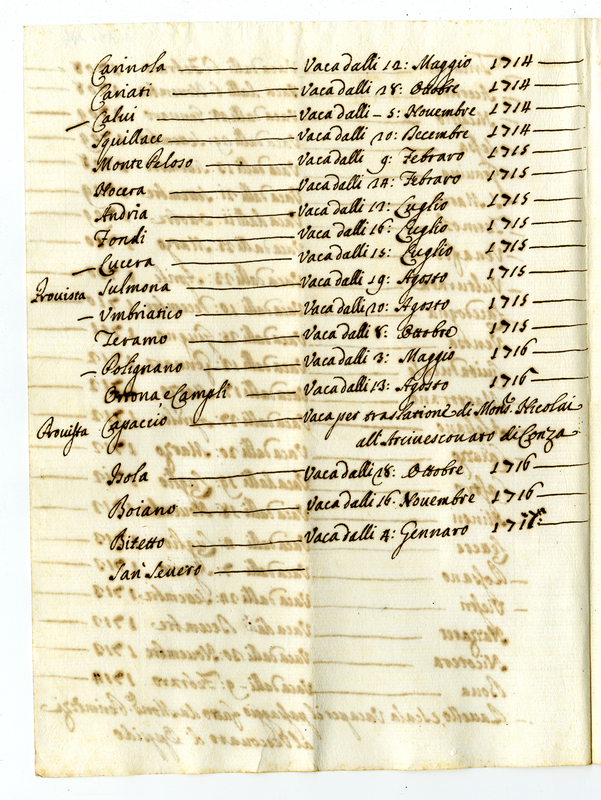 Carinola — Vaca dalli 12: Maggio 1714
Cariati — Vaca dalli 28: Ottobre 1714
— Calvi — Vaca dalli — 5: Novembre 1714
Squillace — Vaca dalli 20: Decembre 1714
Monte Peloso — Vaca dalli 9: Febraro 1715
Nocera — Vaca dalli 24: Febraro 1715
Andria — Vaca dalli 12: Luglio 1715
Fondi — Vaca dalli 16: Luglio 1715
— Lucera — Vaca dalli 15: Luglio 1715
Provista Sulmona — Vaca dalli 19: Agosto 1715
— Umbriatico — Vaca dalli 20: Agosto 1715
Teramo — Vaca dalli 8: Ottobre 1715
— Polignano — Vaca dalli 3: Maggio 1716
Ortona, e Campli — Vaca dalli 13: Agosto 1716
Provista Capaccio — Vaca per traslatione di Mons.r Nicolai
all'Arcivescovato di Conza
Isola — Vaca dalli 28: Ottobre 1716
Boiano — Vaca dalli 16. Novembre 1716
Bitetto — Vaca dalli 4: Gennaro
San Severo —